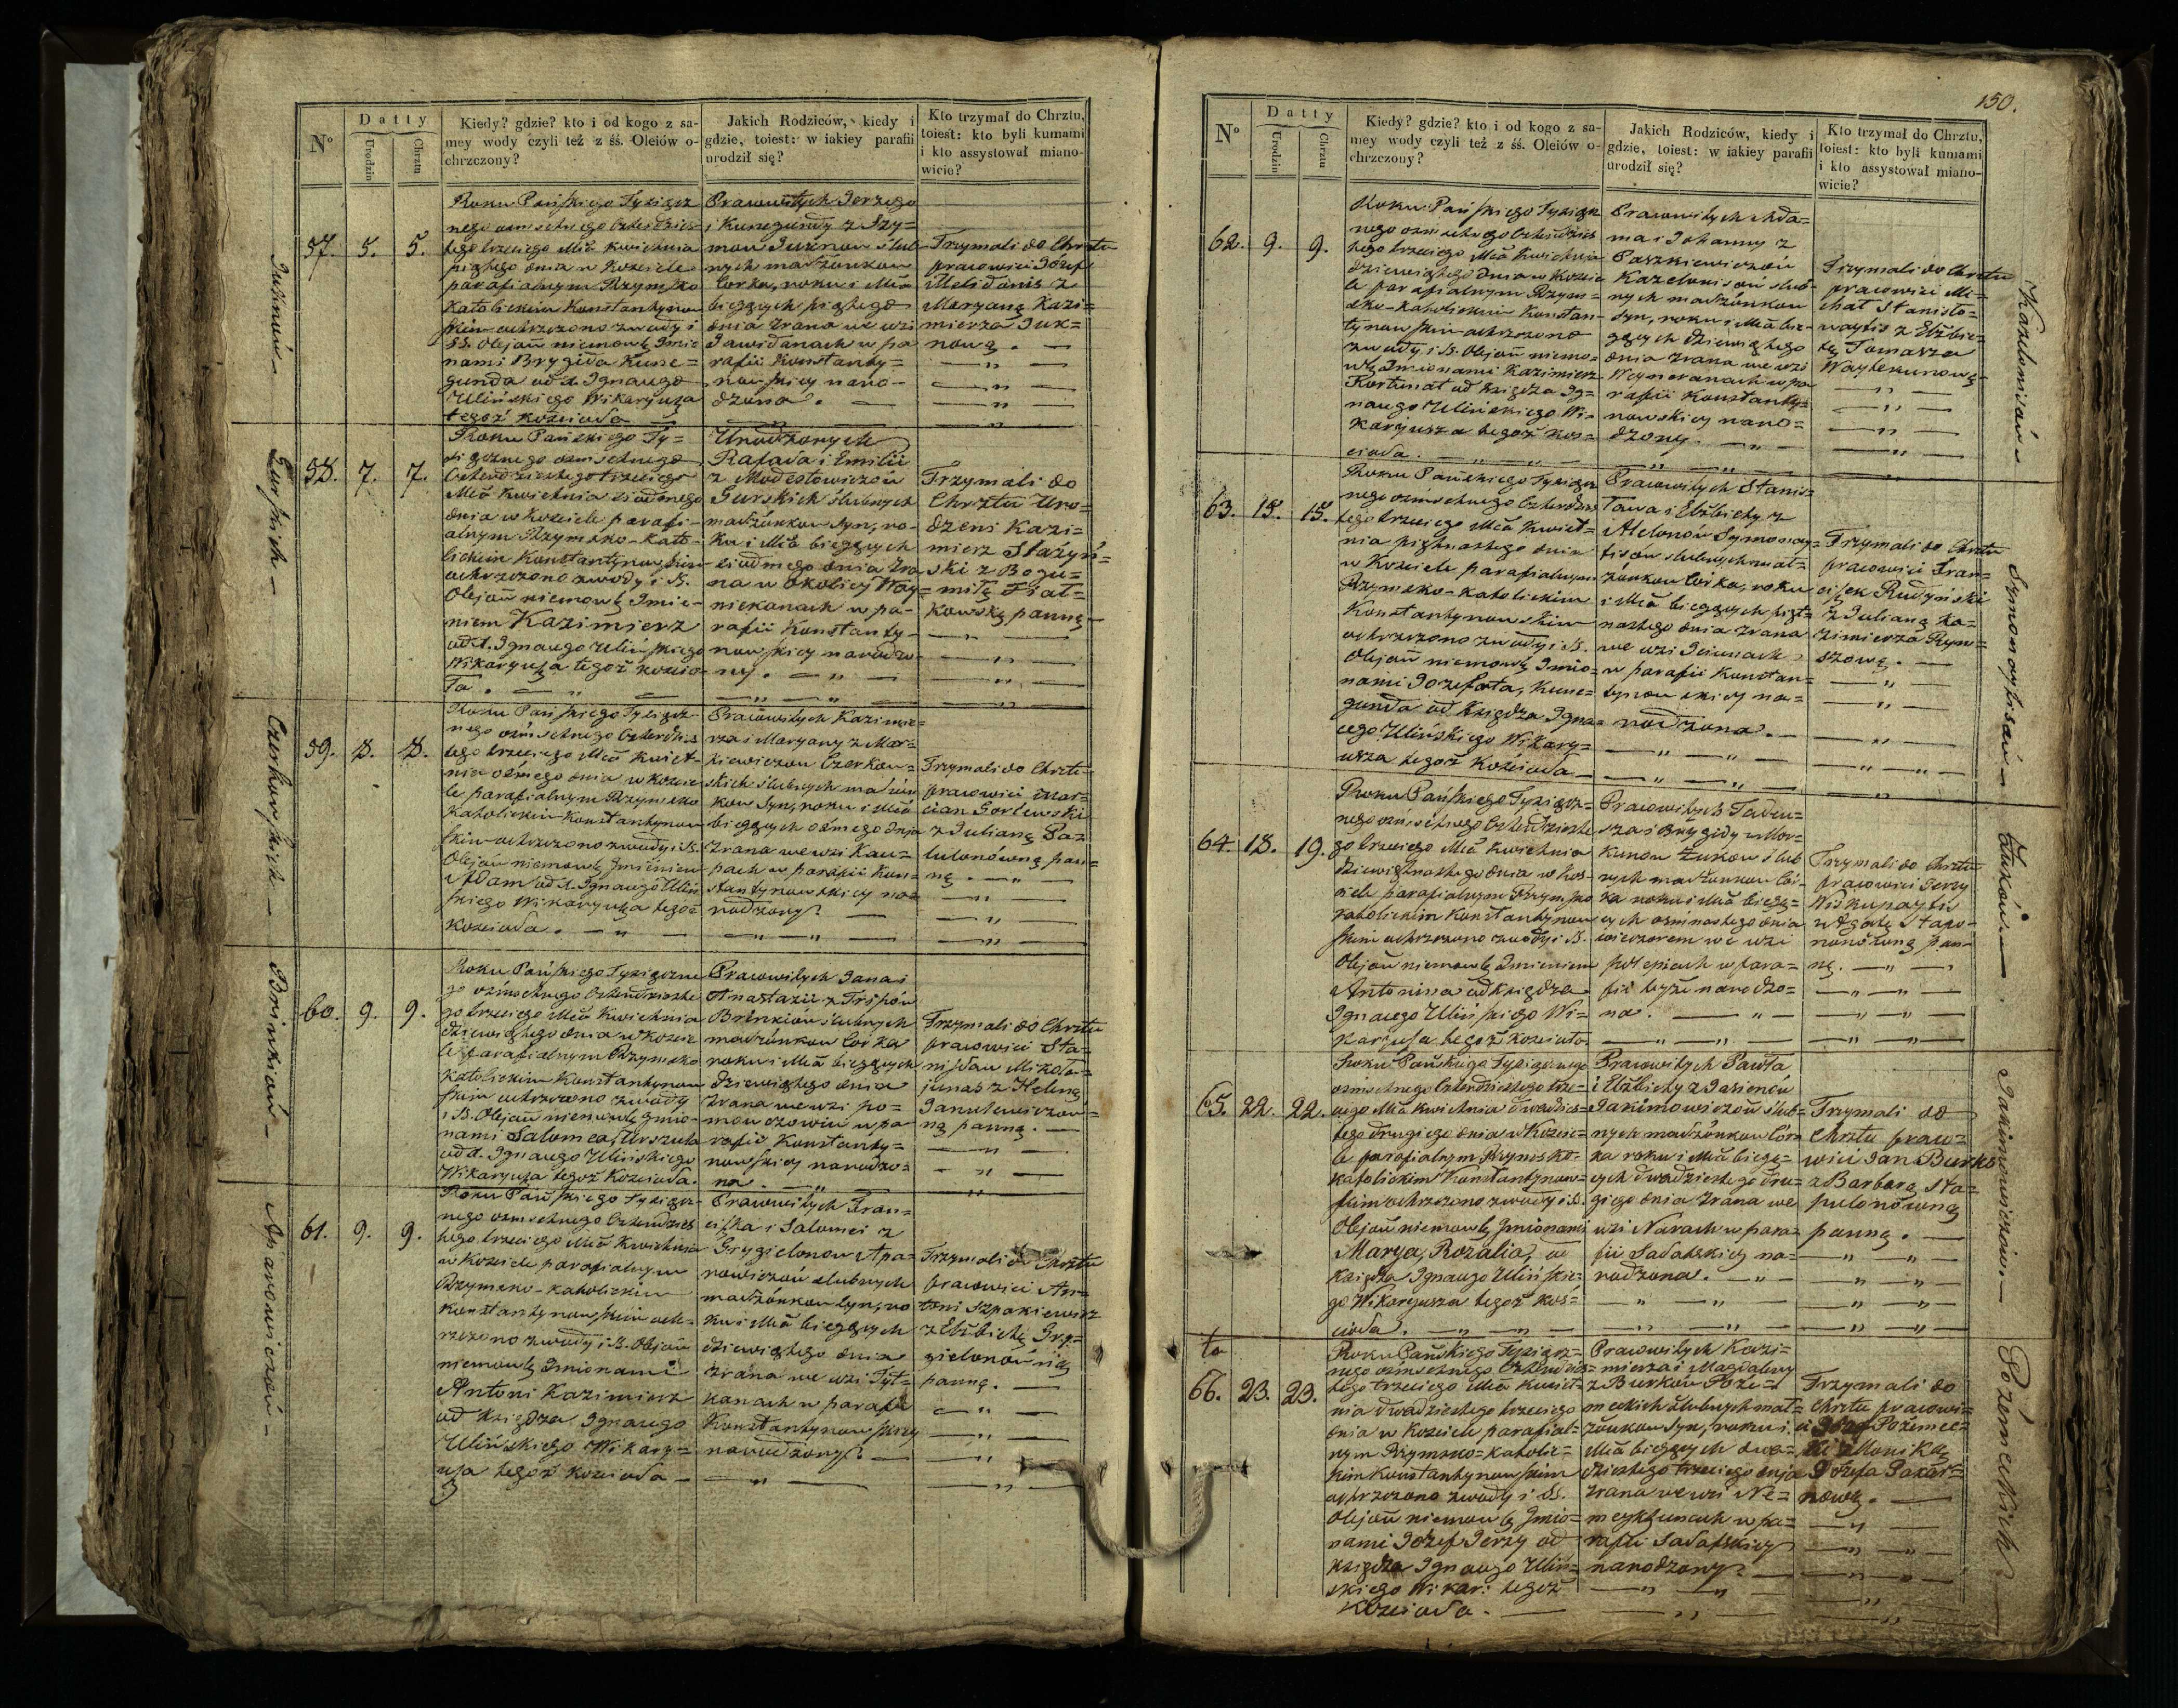 150.
Nº
Datty
Urodzin
Chrztu
Kiedy? gdzie? kto i od kogo z sa-
mey wody czyli też z śś. Oleiów o-
chrzczony?
Jakich Rodziców, kiedy i
gdzie, toiest: w iakiey parafii
urodził się?
Kto trzymał do Chrztu,
toiest: kto byli kumami
i kto assystował miano-
wicie?
57. 5. 5.
Roku Pańskiego Tysiącz
nego osmsetnego Czterdzies
tego trzeciego Mca Kwietnia
piątego dnia w Kościele
parafialnym Rzymsko
Katolickim Konstantynow
skim ochrzczono z wody i
SS. Olejow niemowlę Imio
nami Brygida Kune=
gunda od X. Ignacego
Ulińskiego Wikaryusza
tegoż kościoła
Pracowitych Jerzego
i Kunegundy z Szy=
mow slub-
nych małżonkow
Corka, roku i Mca
bieżących piątego
dnia zrana we wsi
w pa
rafii Konstanty=
nowskiey naro-
dzona. —
Trzymali do Chrztu
pracowici Józef
z
Maryanną Kazi=
mierza Juk=
nową. —
58. 7. 7.
Roku Pańskiego Ty=
siącznego osmsetnego
Czterdziestego trzeciego
Mca Kwietnia siodmego
dnia w Kościele parafi-
alnym Rzymsko-Kato-
lickim Konstantynowskim
ochrzczono z wody i S.
Olejow niemowlę Imie-
niem Kazimierz
od X. Ignacego Ulińskiego
Wikaryusza tegoż kościo-
ła. —
Urodzonych
Rafała i Emilii
z Modestowiczow
Gurskich slubnych
małżonkow Syn, ro-
ku i Mca bieżących
siodmego dnia zra
na w okolicy Woy=
niekanach w pa-
rafii Konstanty-
nowskiey narodzo-
ny. —
Trzymali do
Chrztu Uro=
dzeni Kazi=
mierz Stażyń=
ski z Bogu=
miłą Fiał=
kowską panną
Gurskich —
59. 8. 8.
Roku Pańskiego Tysiącz-
nego osmsetnego Czterdzies
tego trzeciego Mca Kwiet-
nia osmego dnia w Koscie
le parafialnym Rzymsko
Katolickim Konstantynow
skim ochrzczono z wody i S.
Olejow niemowlę Imieniem
Adam od X. Ignacego Uliń
skiego Wikaryusza tegoż
Kościoła. —
Pracowitych Kazimie=
rza i Maryanny z Mar=
kiewiczow Czerkow=
skich slubnych małżon
kow Syn, roku i Mca
bieżących osmego dnia
zrana we wsi Kau=
pach w parafii Kon=
stantynowskiey na=
rodzony. —
Trzymali do Chrztu
pracowici Mar=
cian Gorlewski
z Julianną Paz
lulonówną pan=
ną. —
Czerkowskich —
60. 9. 9.
Roku Pańskiego Tysiączne
go osmsetnego Czterdzieste
go trzeciego Mca Kwietnia
dziewiątego dnia w Koscie
le parafialnym Rzymsko
Katolickim Konstantynow
skim ochrzczono z wody
i S. Olejow niemowlę Imio=
nami Salomea, Urszula
od X. Ignacego Ulińskiego
Wikaryusza tegoż Kościoła.
Pracowitych Jana i
Anastazii z Trypów
Brinkiów slubnych
małżonkow Corka
roku i Mca bieżących
dziewiątego dnia
zrana we wsi po=
w pa=
rafii Konstanty=
nowskiey narodzo=
na —
Trzymali do Chrztu
pracowici Sta=
nisław Mikoła=
junas z Heleną
Janulewiczow=
ną panną. —
Brinkiow —
61. 9. 9.
Roku Pańskiego Tysiącz-
nego osmsetnego Czterdzies
tego trzeciego Mca Kwietnia
w Kościele parafialnym
Rzymsko-Katolickim
Konstantynowskim och-
rzczono z wody i S. Olejow
niemowlę Imionami
Antoni Kazimierz
od Księdza Ignacego
Ulińskiego Wikary=
usza tegoż kościoła —
Pracowitych Fran=
ciszka i Salomei z
Grygielonow Apa=
rowiczow slubnych
małżonkow Syn, ro
ku i Mca bieżących
dziewiątego dnia
zrana we wsi Tyt=
kanach w parafii
Konstantynowskiey
narodzony. —
Trzymali do Chrztu
pracowici An=
toni Szpakiewicz
z Elżbietą Gry=
gielonówną
panną. —
Aparowiczow —
62. 9. 9.
Roku Pańskiego Tysiącz
nego osmsetnego Czterdzies
tego trzeciego Mca Kwietnia
dziewiątego dnia w Koscie
le parafialnym Rzym=
sko-Katolickim Konstan=
tynowskim ochrzczono
z wody i S. Olejow niemo=
wlę Imionami Kazimierz
Fortunat od Księdza Ig=
nacego Ulińskiego Wi=
karyusza tegoż kos=
cioła. —
Pracowitych Ada=
ma i Johanny z
Paszkiewiczów
slub=
nych małżonkow
Syn, roku i Mca bie=
żących dziewiątego
dnia zrana we wsi
w pa
rafii Konstanty=
nowskiey naro=
dzony. —
Trzymali do Chrztu
pracowici Mi=
chał Stanisło=
waytis z Elżbie=
tą Tomasza
Waytekunową
63. 15. 15.
Roku Pańskiego Tysiącz
nego osmsetnego Czterdzies
tego trzeciego Mca Kwiet=
nia piętnastego dnia
w Kościele parafialnym
Rzymsko-Katolickim
Konstantynowskim
ochrzczono z wody i S.
Olejow niemowlę Imio=
nami Jozefata, Kune=
gunda od Księdza Igna=
cego Ulińskiego Wikary=
usza tegoż Kościoła —
Pracowitych Stanis
ława i Elżbiety z
Symonay=
tisow slubnych mał=
żonkow Corka, roku
i Mca bieżących pięt=
nastego dnia zrana
we wsi
w parafii Konstan=
tynowskiey na=
rodzona. —
Trzymali do Chrztu
pracowici Fran=
ciszek Rudyński
z Julianną Ka=
zimierza Rym=
szową. —
Symonaytisow —
64. 18. 19.
Roku Pańskiego Tysiącz=
nego osmsetnego Czterdzieste
go trzeciego Mca Kwietnia
dziewiętnastego dnia w Kos=
ciele parafialnym Rzymsko
Katolickim Konstantynow
skim ochrzczono z wody i S.
Olejow niemowlę Imieniem
Antonina od Księdza
Ignacego Ulińskiego Wi=
karyusza tegoż kościoła
Pracowitych Tadeu=
sza i Brygidy z Mor=
kunow Żukow slub
nych małżonkow Cór-
ka roku i Mca bieżą=
cych osmnastego dnia
wieczorem we wsi
w para=
fii teyże narodzo=
na. —
Trzymali do Chrztu
pracowici Jerzy
Wiskupaytis
z Agatą Stapo-
nonówną pan-
ną. —
Żuków. —
65. 22. 22.
Roku Pańskiego Tysiącznego
osmsetnego Czterdziestego trze=
ciego Mca Kwietnia dwudzies=
tego drugiego dnia w Koscie=
le parafialnym Rzymsko=
katolickim Konstantynow=
skim ochrzczono z wody i S.
Olejow niemowlę Imionami
Marya, Rozalia, od
Księdza Ignacego Ulińskie=
go Wikaryusza tegoż Koś=
cioła. —
Pracowitych Pawła
i Elżbiety z Jasionów
Jakimowiczow slub=
nych małżonkow Cór=
ka roku i Mca bieżą=
cych dwudziestego dru=
giego dnia zrana we
wsi Narach w para=
fii Sadałskiey na=
rodzona. —
Trzymali do
Chrztu praco=
wici Jan Burko
z Barbarą Sta=
pulonówną
panną. —
Jakimowiczow —
ta
66. 23. 23.
Roku Pańskiego Tysiącz=
nego osmsetnego Czterdzies=
tego trzeciego Mca Kwiet=
nia dwudziestego trzeciego
dnia w Kościele parafial=
nym Rzymsko=Katolic=
kim Konstantynowskim
ochrzczono z wody i S.
Olejow niemowlę Imio=
nami Józef Jerzy od
Księdza Ignacego Uliń=
skiego Wikar: tegoż
Kościoła. —
Pracowitych Kazi=
mierza i Magdaleny
z Burków Poże=
meckich slubnych mał=
żonkow Syn, roku i
Mca bieżących dwu=
dziestego trzeciego dnia
zrana we wsi Nie=
w pa=
rafii Sadałskiey
narodzony. —
Trzymali do
Chrztu pracowi=
Pożemec=
ki z Moniką
Józefa
nową. —
Pożemeckich